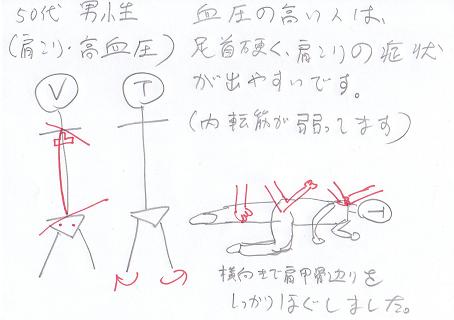 50代 男性
(肩こり・高血圧)
血圧の高い人は、
足首硬く、肩こりの症状
が出やすいです。
(内転筋が弱ってます)
V
T
T
横向きで肩甲骨辺りを
しっかりほぐしました。